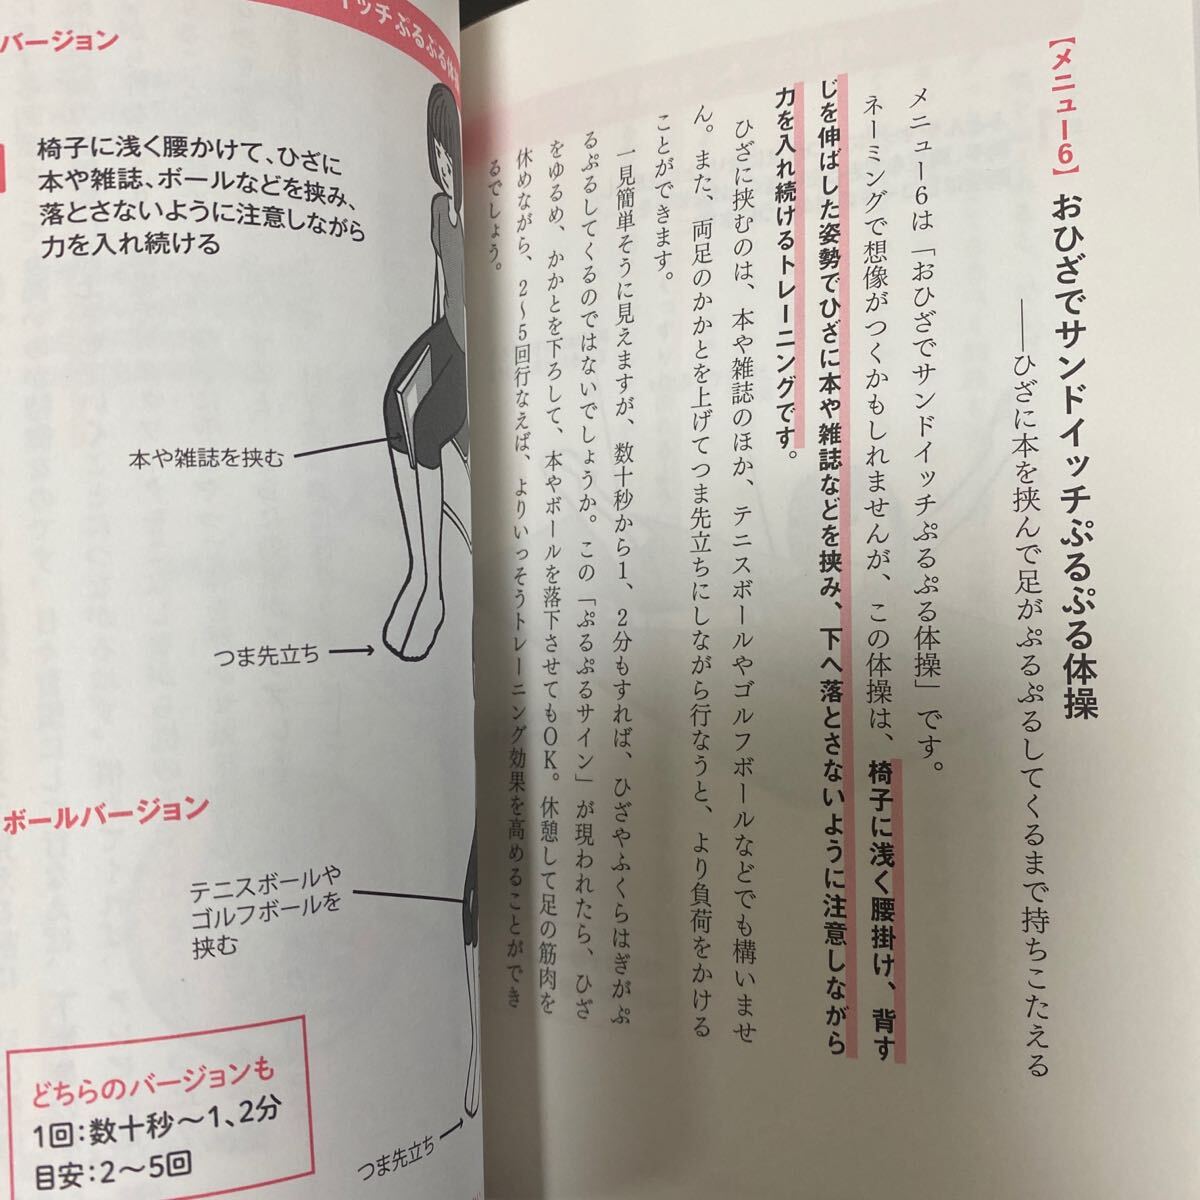 【メニュー6】おひざでサンドイッチぷるぷる体操
――ひざに本を挟んで足がぷるぷるしてくるまで持ちこたえる
メニュー6は「おひざでサンドイッチぷるぷる体操」です。
ネーミングで想像がつくかもしれませんが、この体操は、椅子に浅く腰掛け、背す
じを伸ばした姿勢でひざに本や雑誌などを挟み、下へ落とさないように注意しながら
力を入れ続けるトレーニングです。
ひざに挟むのは、本や雑誌のほか、テニスボールやゴルフボールなどでも構いませ
ん。また、両足のかかとを上げてつま先立ちにしながら行なうと、より負荷をかける
ことができます。
一見簡単そうに見えますが、数十秒から1、2分もすれば、ひざやふくらはぎがぷ
るぷるしてくるのではないでしょうか。この「ぷるぷるサイン」が現われたら、ひざ
をゆるめ、かかとを下ろして、本やボールを落下させてもOK。休憩して足の筋肉を
休めながら、2〜5回行なえば、よりいっそうトレーニング効果を高めることができ
るでしょう。
イッチぷるぷる体
バージョン
椅子に浅く腰かけて、ひざに
本や雑誌、ボールなどを挟み、
落とさないように注意しながら
力を入れ続ける
本や雑誌を挟む
つま先立ち
ボールバージョン
テニスボールや
ゴルフボールを
挟む
つま先立ち
どちらのバージョンも
1回:数十秒〜1、2分
目安:2〜5回